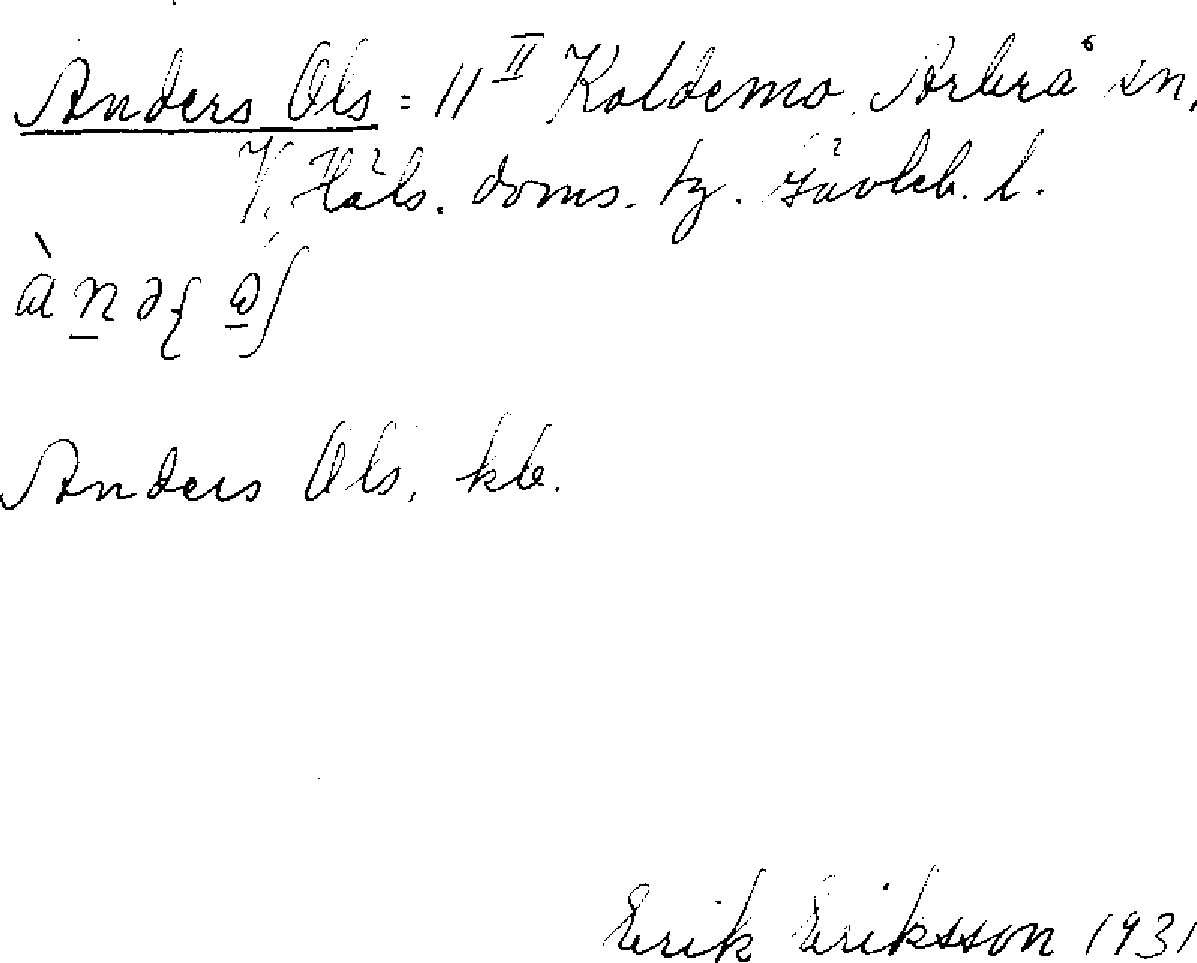 Anders Ols = 11 II Koldemo, Arbrå sn,
V. Häls. doms. tg. Gävleb. l.
Anders Ols, kb.
Erik Eriksson 1931